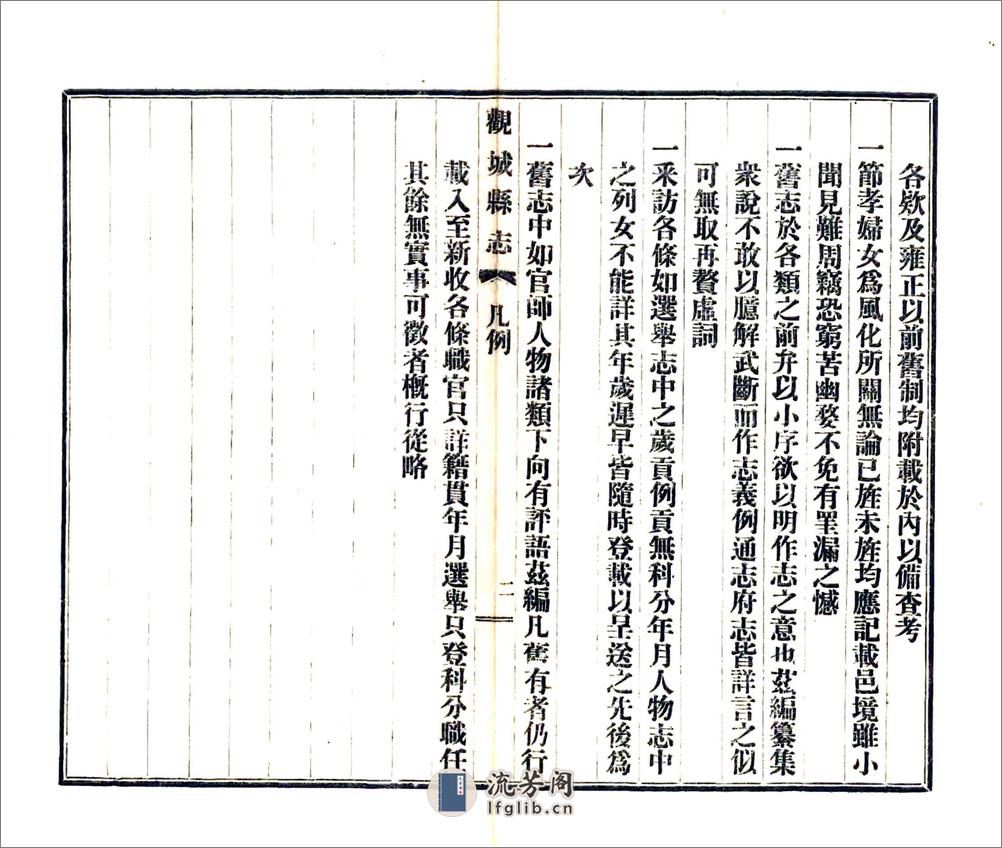 各欵及雍正以前舊制均附載於內以備查考
一節孝婦女爲風化所關無論已旌未旌均應記載邑境雖小
聞見難周竊恐窮苦幽嫠不免有罣漏之憾
一舊志於各類之前弁以小序欲以明作志之意也茲編纂集
衆說不敢以臆解武斷而作志義例通志府志皆詳言之似
可無取再贅虛詞
一采訪各條如選舉志中之歲貢例貢無科分年月人物志中
之列女不能詳其年歲遲早皆隨時登載以呈送之先後爲
次
一舊志中如官師人物諸類下向有評語茲編凡舊有者仍行
觀城縣志 凡例 二
載入至新收各條職官只詳籍貫年月選舉只登科分職任
其餘無實事可徵者概行從略
流芳阁
lfglib.cn